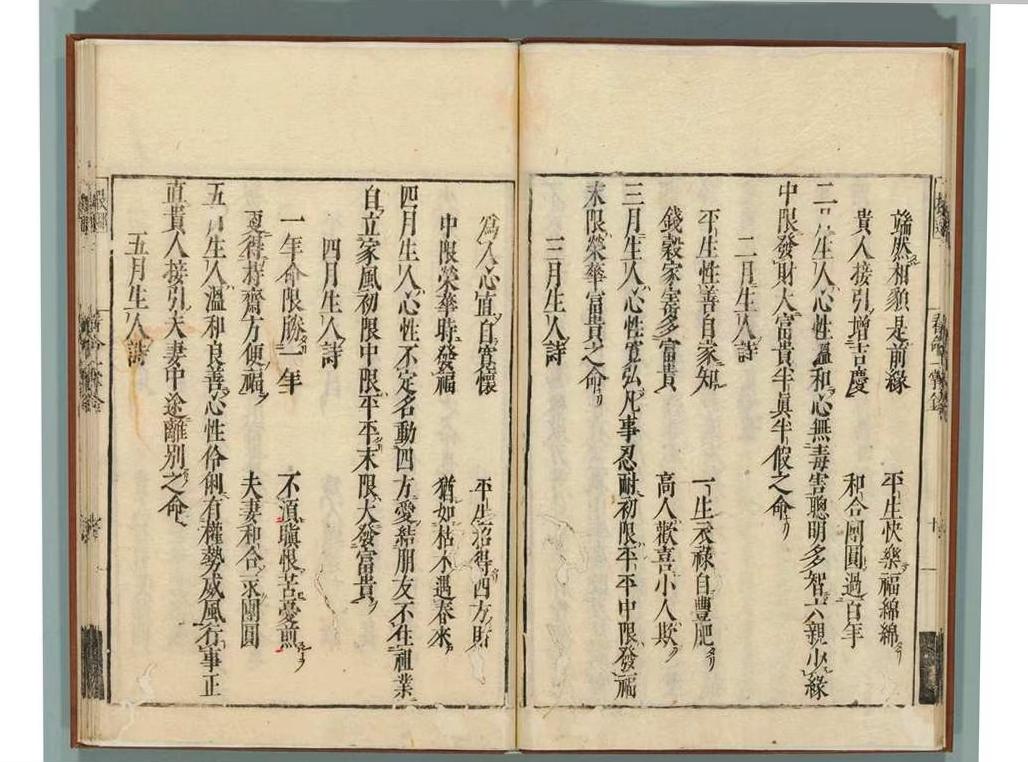 端然相貌是前緣　平生快樂福綿綿
貴人接引增吉慶　和合團圓過百年
二月生人心性溫和心無毒害聰明多智六親少緣
中限發財大富貴半眞半假之命
二月生人詩
平生性善自家知　一生衣祿自豐肥
錢穀家多富貴　高人歡喜小人欺
三月生人心性寬弘凡事忍耐初限平平中限發福
末限榮華富貴之命
三月生人詩
爲人心直自寬懷　平生招得四方財
中限榮華時發福　猶如枯木遇春來
四月生人心性不定名動四方愛結朋友不住祖業
自立家風初限中限平平末限大發富貴
四月生人詩
一年命限勝一年　不須瞋恨苦憂煎
更得持齋方便福　夫妻和合永團圓
五月生人溫和良善心性伶俐有權勢威風行事正
直貴人接引夫妻中途離別之命
五月生人詩